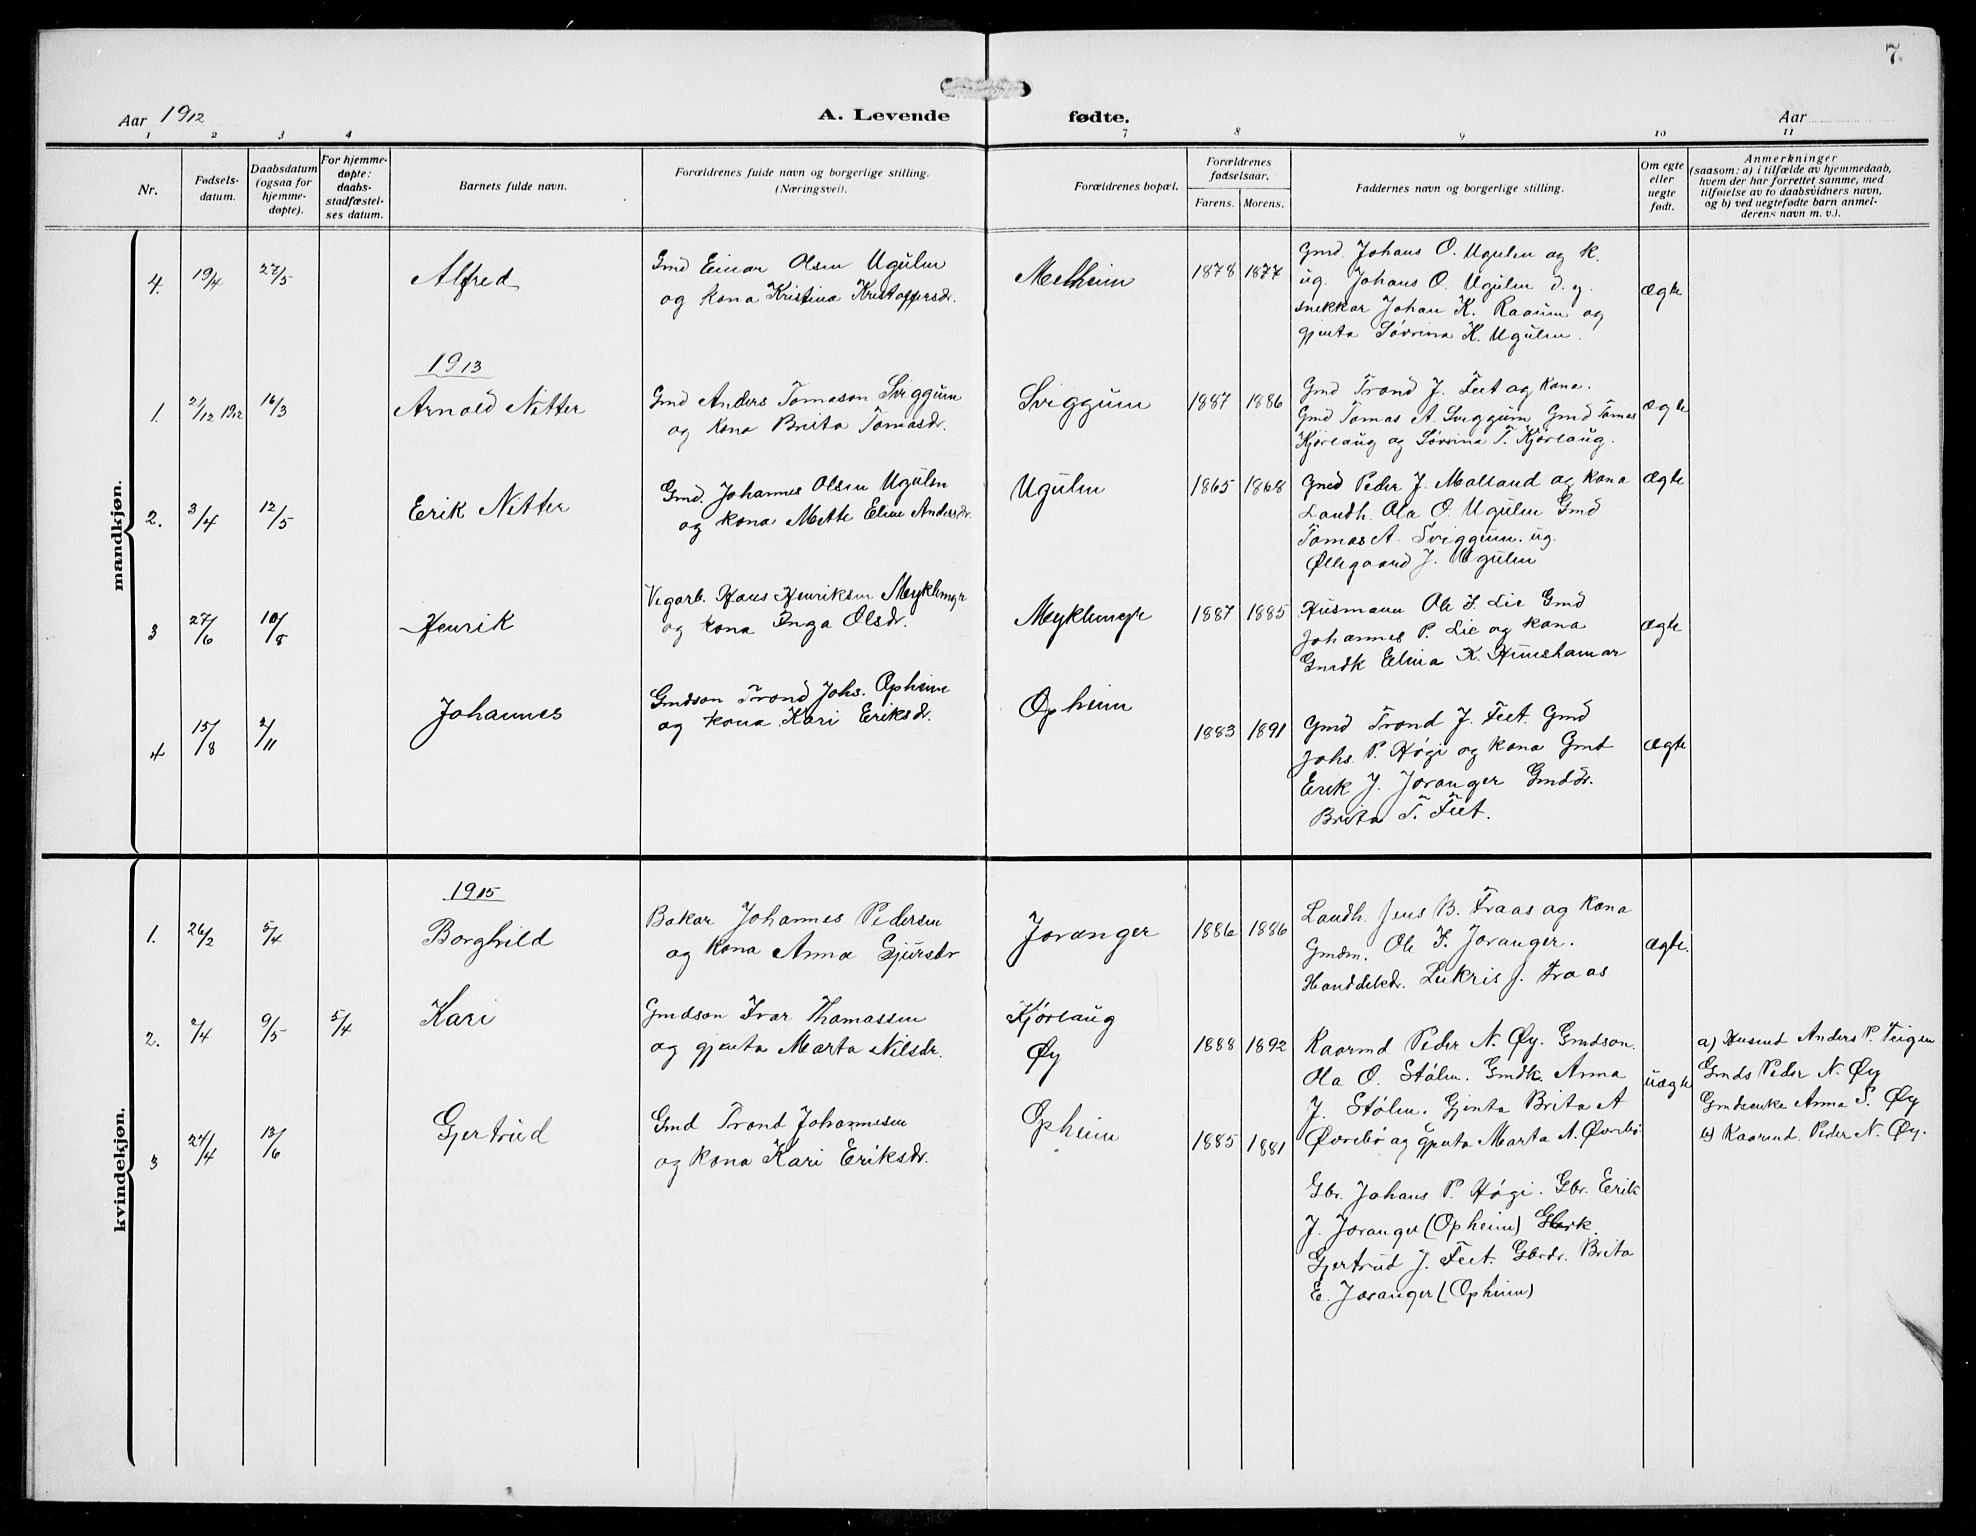 7.
Aar 1912
A. Levende fødte.
Aar
1 2 3 4 7 8 9 10 11
Nr.
Fødsels-
datum.
Daabsdatum
(ogsaa for
hjemme-
døpte).
For hjemme-
døpte:
daabs-
stadfæstel-
ses datum.
Barnets fulde navn.
Forældrenes fulde navn og borgerlige stilling.
(Næringsvei).
Forældrenes bopæl.
Forældrenes
fødselsaar.
Farens. Morens.
Faddernes navn og borgerlige stilling.
Om egte
eller
uegte
født.
Anmerkninger
(saasom: a) i tilfælde av hjemmedaab,
hvem der har forrettet samme, med
tilføielse av to daabsvidners navn,
og b) ved uegtefødte barn anmel-
derens navn m. v.).
mandkjøn.
4. 19/4 27/5 Alfred
Gmd Einar Olsen Ugulen
og kona Kristina Kristoffersdr.
Melheim 1878 1877
Gmd Johans O. Ugulen og k.
ug. Johans O. Ugulen d. y.
snekkar Johan K. Raaum og
gjenta Søvrina K. Ugulen.
ægte
1913
1. 21/12 1912 16/3 Arnold Nitter
Gmd Anders Tomason Sviggum
og kona Brita Tomasdr.
Sviggum 1887 1886
Gmd Trond J. Feet og kona.
Gmd Tomas A Sviggum Gmd Tomas
Kjørlaug og Søvrina T. Kjørlaug.
ægte
2. 3/4 12/5 Erik Nitter
Gmd. Johannes Olsen Ugulen
og kona Mette Eline Andersdr.
Ugulen 1865 1868
Gmd Peder J. Molland og kona
Landh. Ola O. Ugulen Gmd
Tomas A. Sviggum. ug.
Øllegaard J. Ugulen
ægte
3 27/6 10/8 Henrik
Vegarb. Hans Henriksen Myklemyr
og kona Inga Olsdr.
Myklemyr 1887 1885
Husmann Ole J. Lie Gmd
Johannes P. Lie og kona
Gmdk Elina K. Hunshamar
ægte
4 15/8 2/11 Johannes
Gmdson Trond Johs. Opheim
og kona Kari Eriksdr.
Opheim 1883 1891
Gmd Trond J. Feet. Gmd
Johs. P. Høgi og kona Gmd
Erik J. Joranger Gmddr.
Brita T. Feet.
ægte
kvindekjøn.
1915
1. 26/2 5/4 Borghild
Bakar Johannes Pedersen
og kona Anna Gjursdr
Joranger 1886 1886
Landh. Jens B. Fraas og kona
Gmdm. Ole I. Joranger.
Handelsdr. Lukris J. Fraas
ægte.
2. 2/4 9/5 5/4 Kari
Gmdson Ivar Thomassen
og gjenta Marta Nilsdr.
Kjørlaug
Øy
1888 1892
Kaarmd Peder N. Øy. Gmdson.
Ola O. Stølen. Gmdk. Anna
J. Stølen. Gjenta Brita A
Øvrebø og gjenta Marta A. Øvrebø
uægte
a) Husmd Anders P. Teigen
Gmds Peder N. Øy
Gmdsenke Anna S. Øy
b) Kaarmd. Peder N. Øy.
3 24/4 13/6 Gjertrud
Gmd Trond Johannesen
og kona Kari Eriksdr.
Opheim 1885 1881
Gbr. Johans P. Høgi. Gbr. Erik
J. Joranger (Opheim) Gbrk.
Gjertrud J. Feet. Gbrdr. Brita
E. Joranger (Opheim)